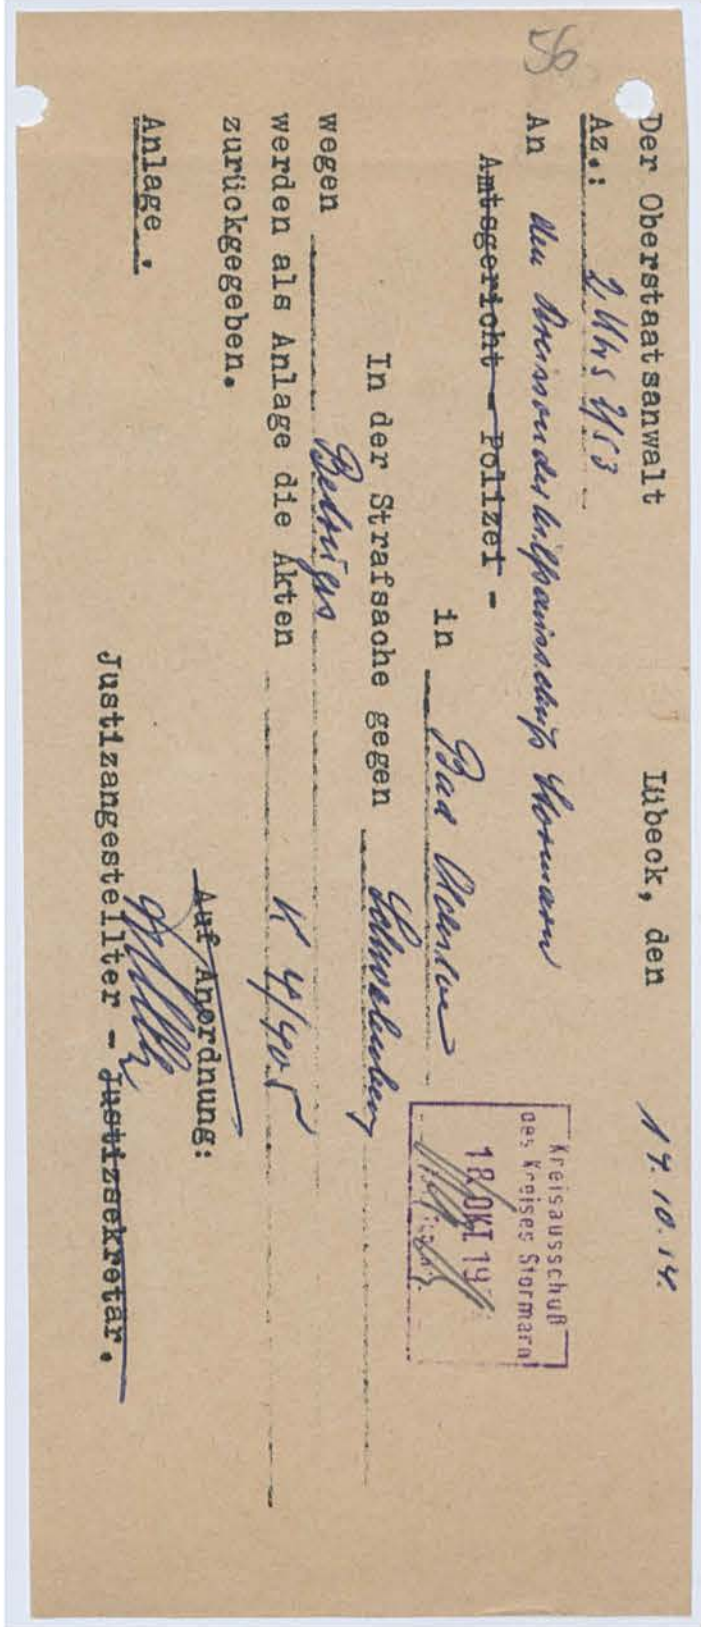 56
Der Oberstaatsanwalt Lübeck, den 17.10.
Az.:
An den Kreissonderhilfsausschuß Stormarn
Amtsgericht - Polizei -
in Bad Oldesloe
Kreisausschuß
des Kreises Stormarn
18. OKT. 19
In der Strafsache gegen
wegen Betruges
werden als Anlage die Akten K 4/405
zurückgegeben.
Auf Anordnung:
Anlage.
Justizangestellter - Justizsekretär.